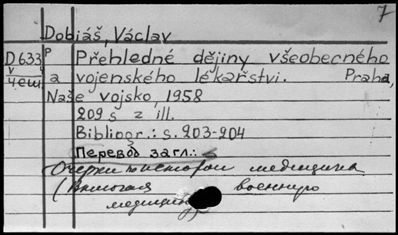 7
Dobiáš, Václav
D633 p Přehledné dějiny všeobecného
v чеш a vojenského lékařství. Praha,
Naše vojsko, 1958
209 s z ill.
Bibliogr.: s. 203-204
Перевод загл.:
Очерки истории медицина
(Включая военную
медицину)